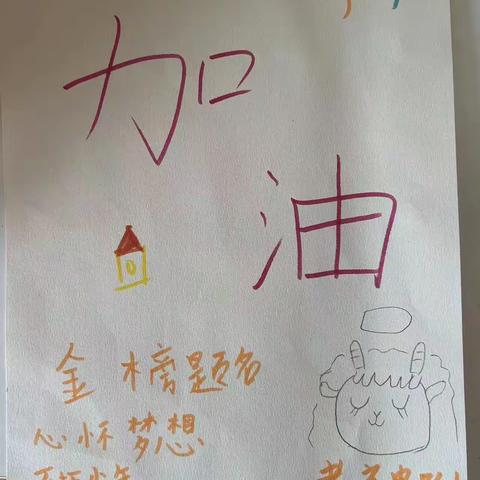 加
油
金榜题名
心怀梦想